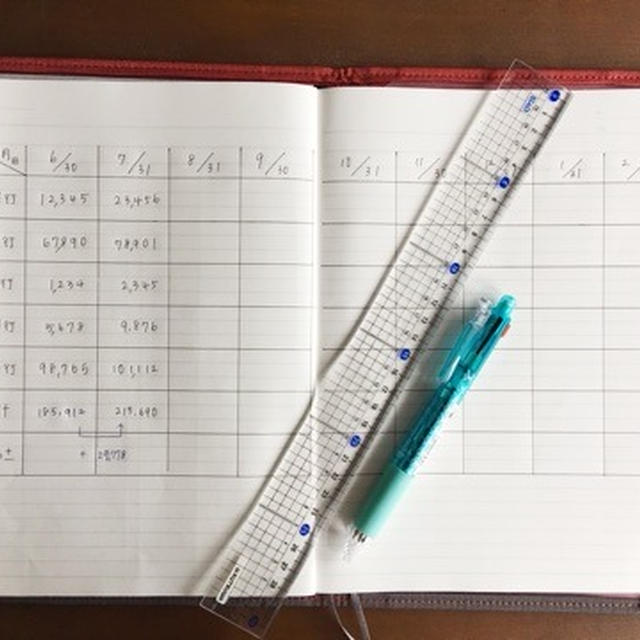 月日 6/30 7/31 8/31 9/30 10/31 11/30 1/31
行 12,345 23,456
行 67,890 78,901
行 1,234 2,345
行 5,678 9,876
行 98,765 101,112
計 185,912 215,690
+ 29,778